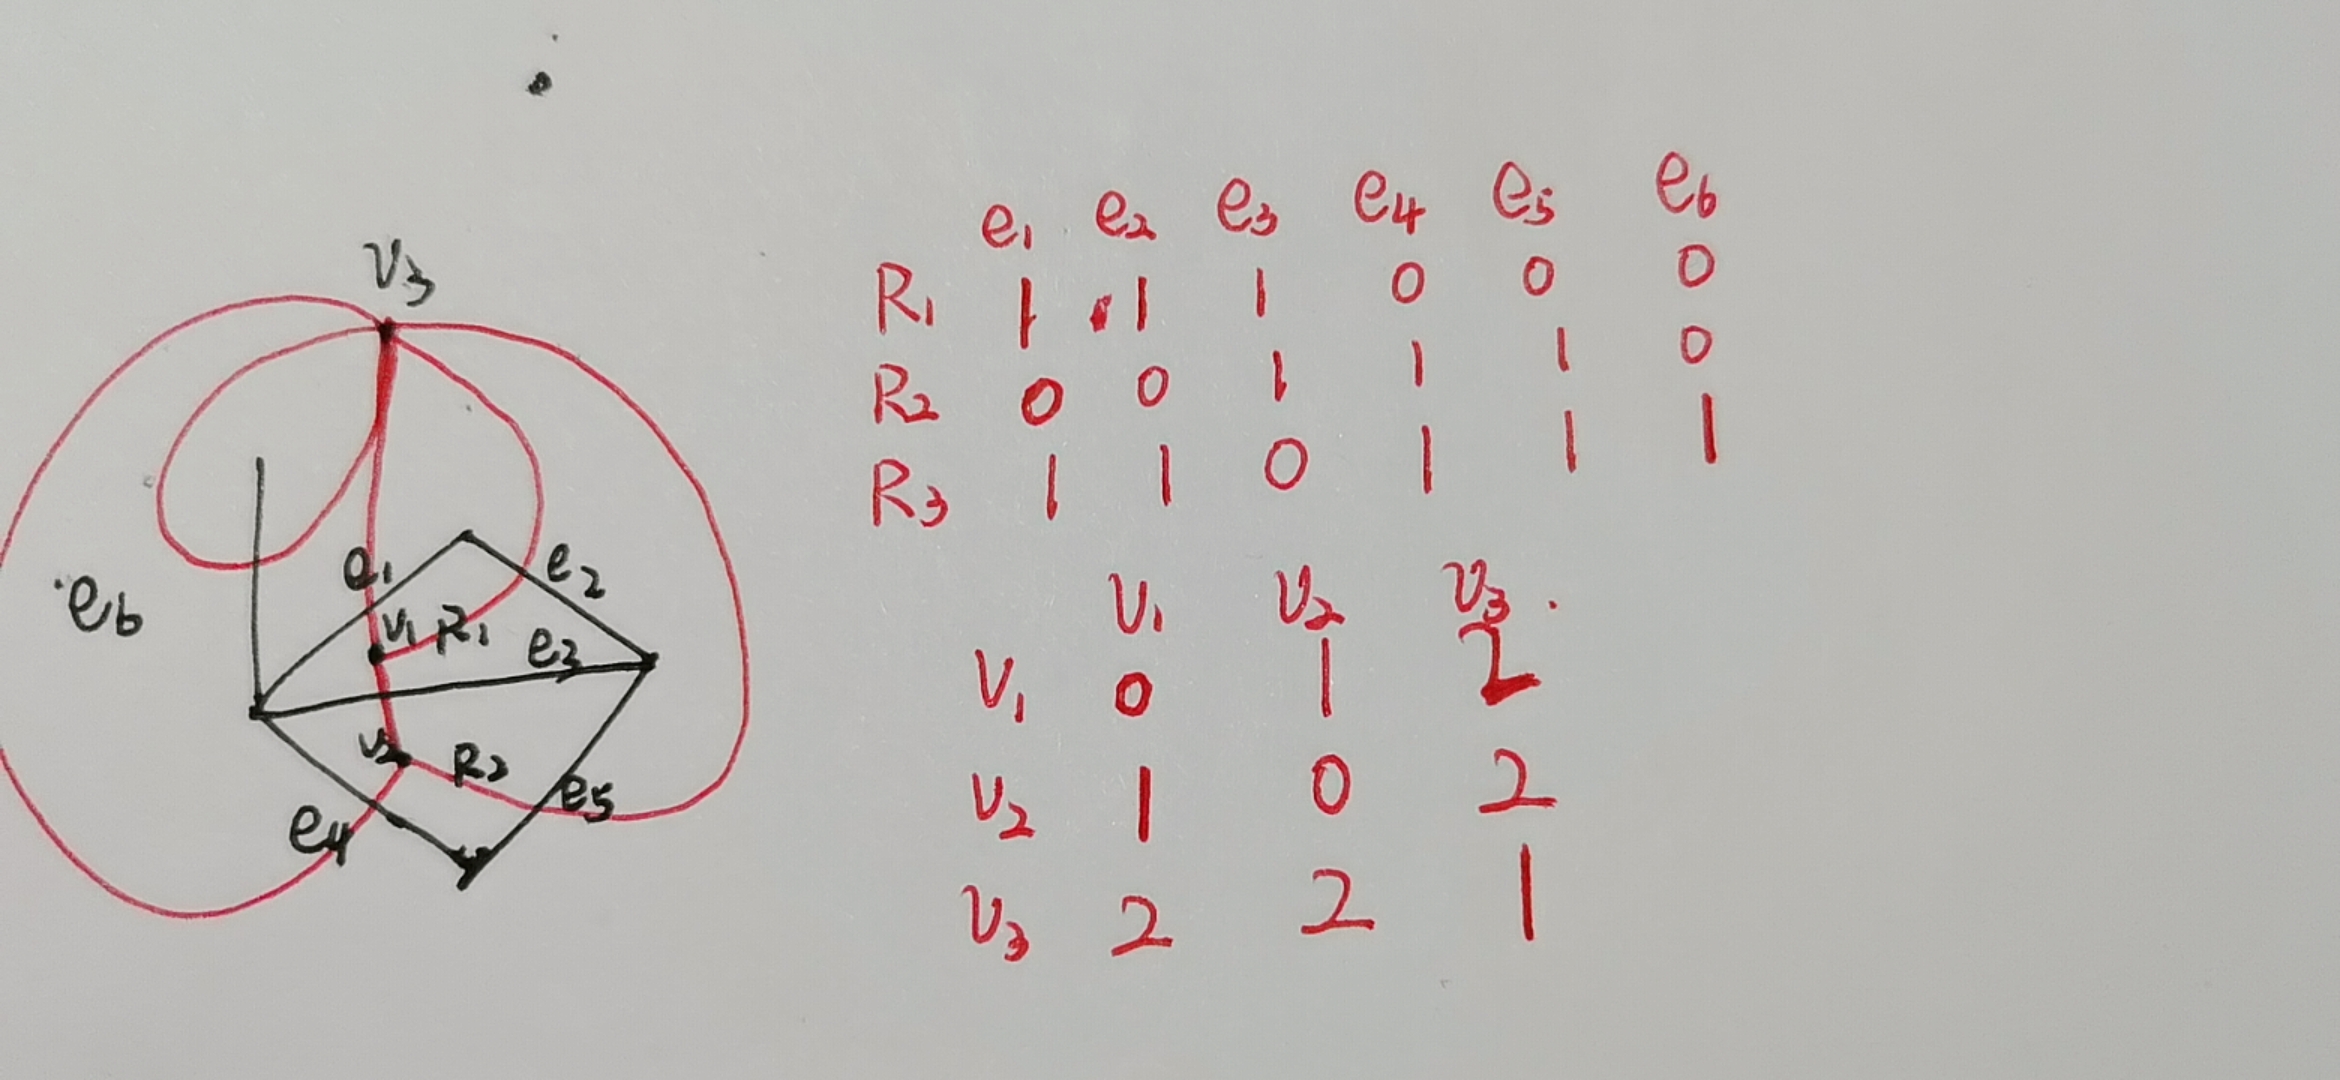 V3
e6
e1
e2
V1 R1
e3
V2 R2
e5
e4
e1 e2 e3 e4 e5 e6
R1 1 1 1 0 0 0
R2 0 0 1 1 1 0
R3 1 1 0 1 1 1
V1 V2 V3
V1 0 1 2
V2 1 0 2
V3 2 2 1